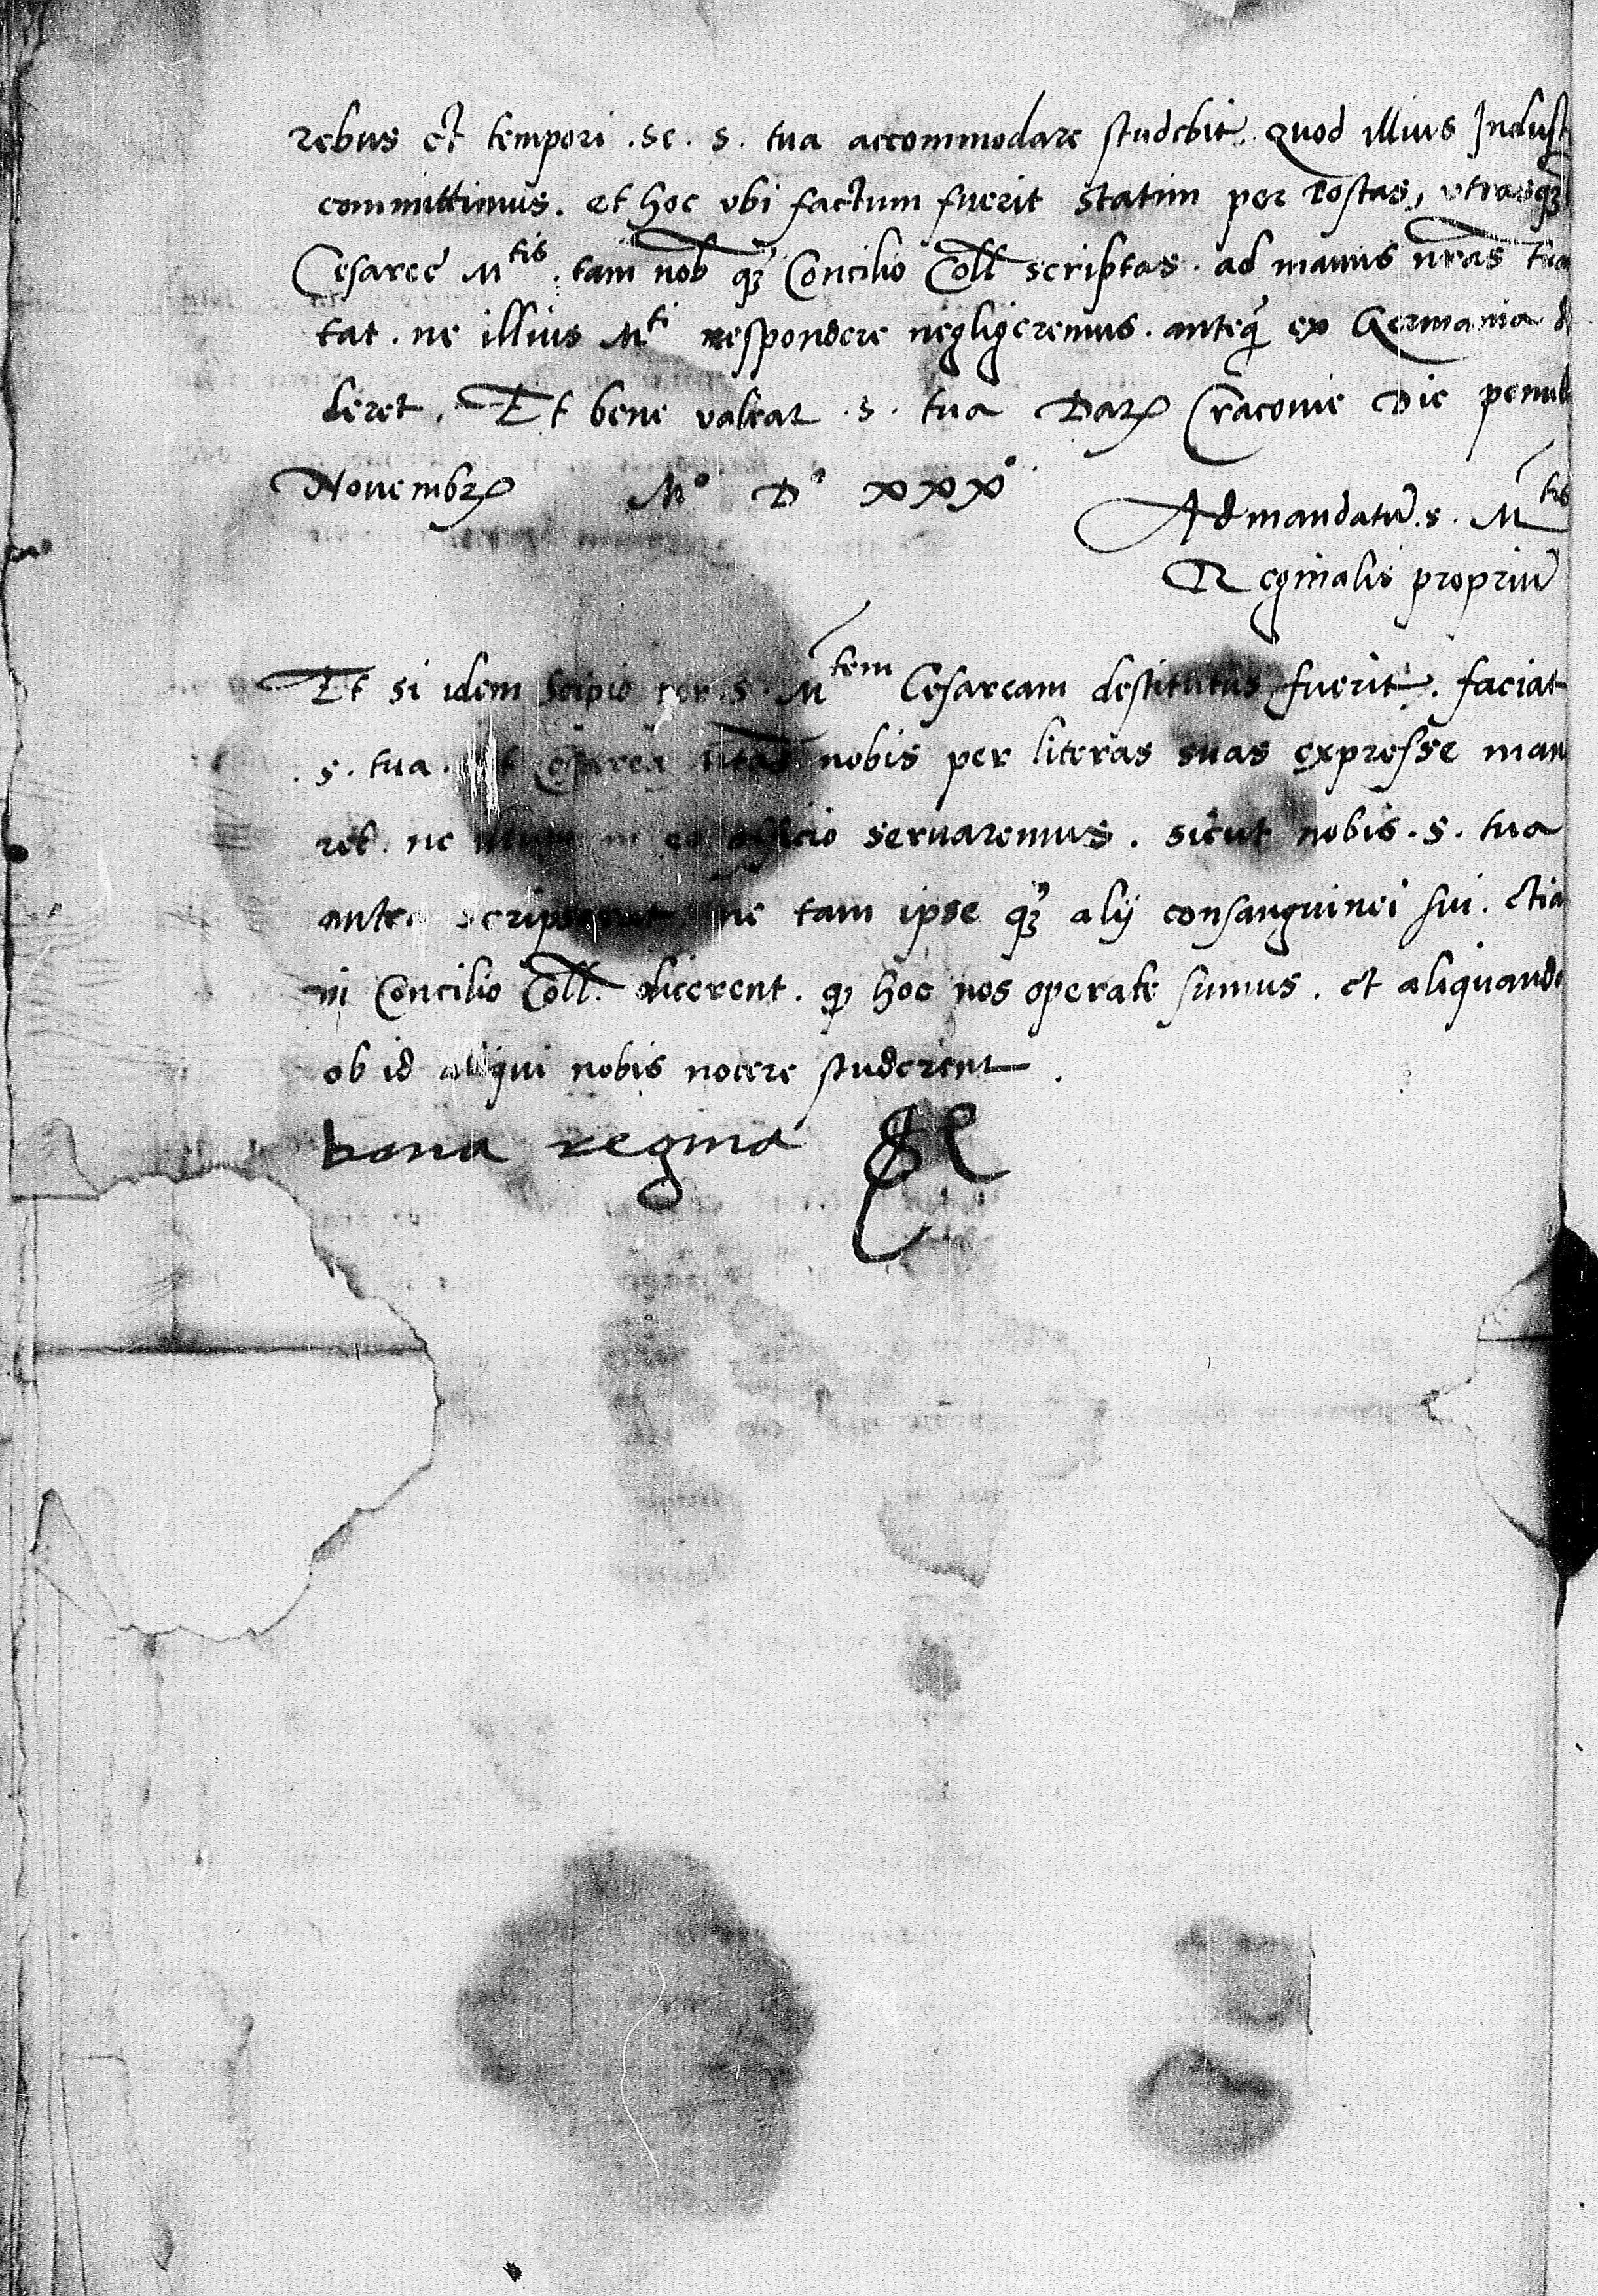 rebus et tempori .se. s. tua accommodare studebit. quod illius Indust
committimus. et hoc vbi factum fuerit statim per Postas, vtrasqꝫ
Cesareẹ Mtis. tam nob qꝫ Concilio Coll scriptas. ad manus nras tra
tat. ne illius Mti respondere negligeremus. anteqꝫ ex Germania d
deret. Et bene valeat .s. tua Datꝝ Cracovie Die penul
Novembrꝭ M° D° xxx°
Ad mandatū .s. Mtis
Reginalis propriū
Et si idem Scipio per .s. Mtem Cesaream destitutus fuerit. faciat
.s. tua. ut Cesarea nobis per literas suas expresse man
ret. ne illum in eo officio servaremus. sicut nobis .s. tua
antea scripserat ne tam ipse qꝫ alij consanguinei sui. etia
in Concilio Coll. dicerent. ꝙ hoc nos operate sumus. et aliquando
ob id aliqui nobis nocere studerent.
bona regina